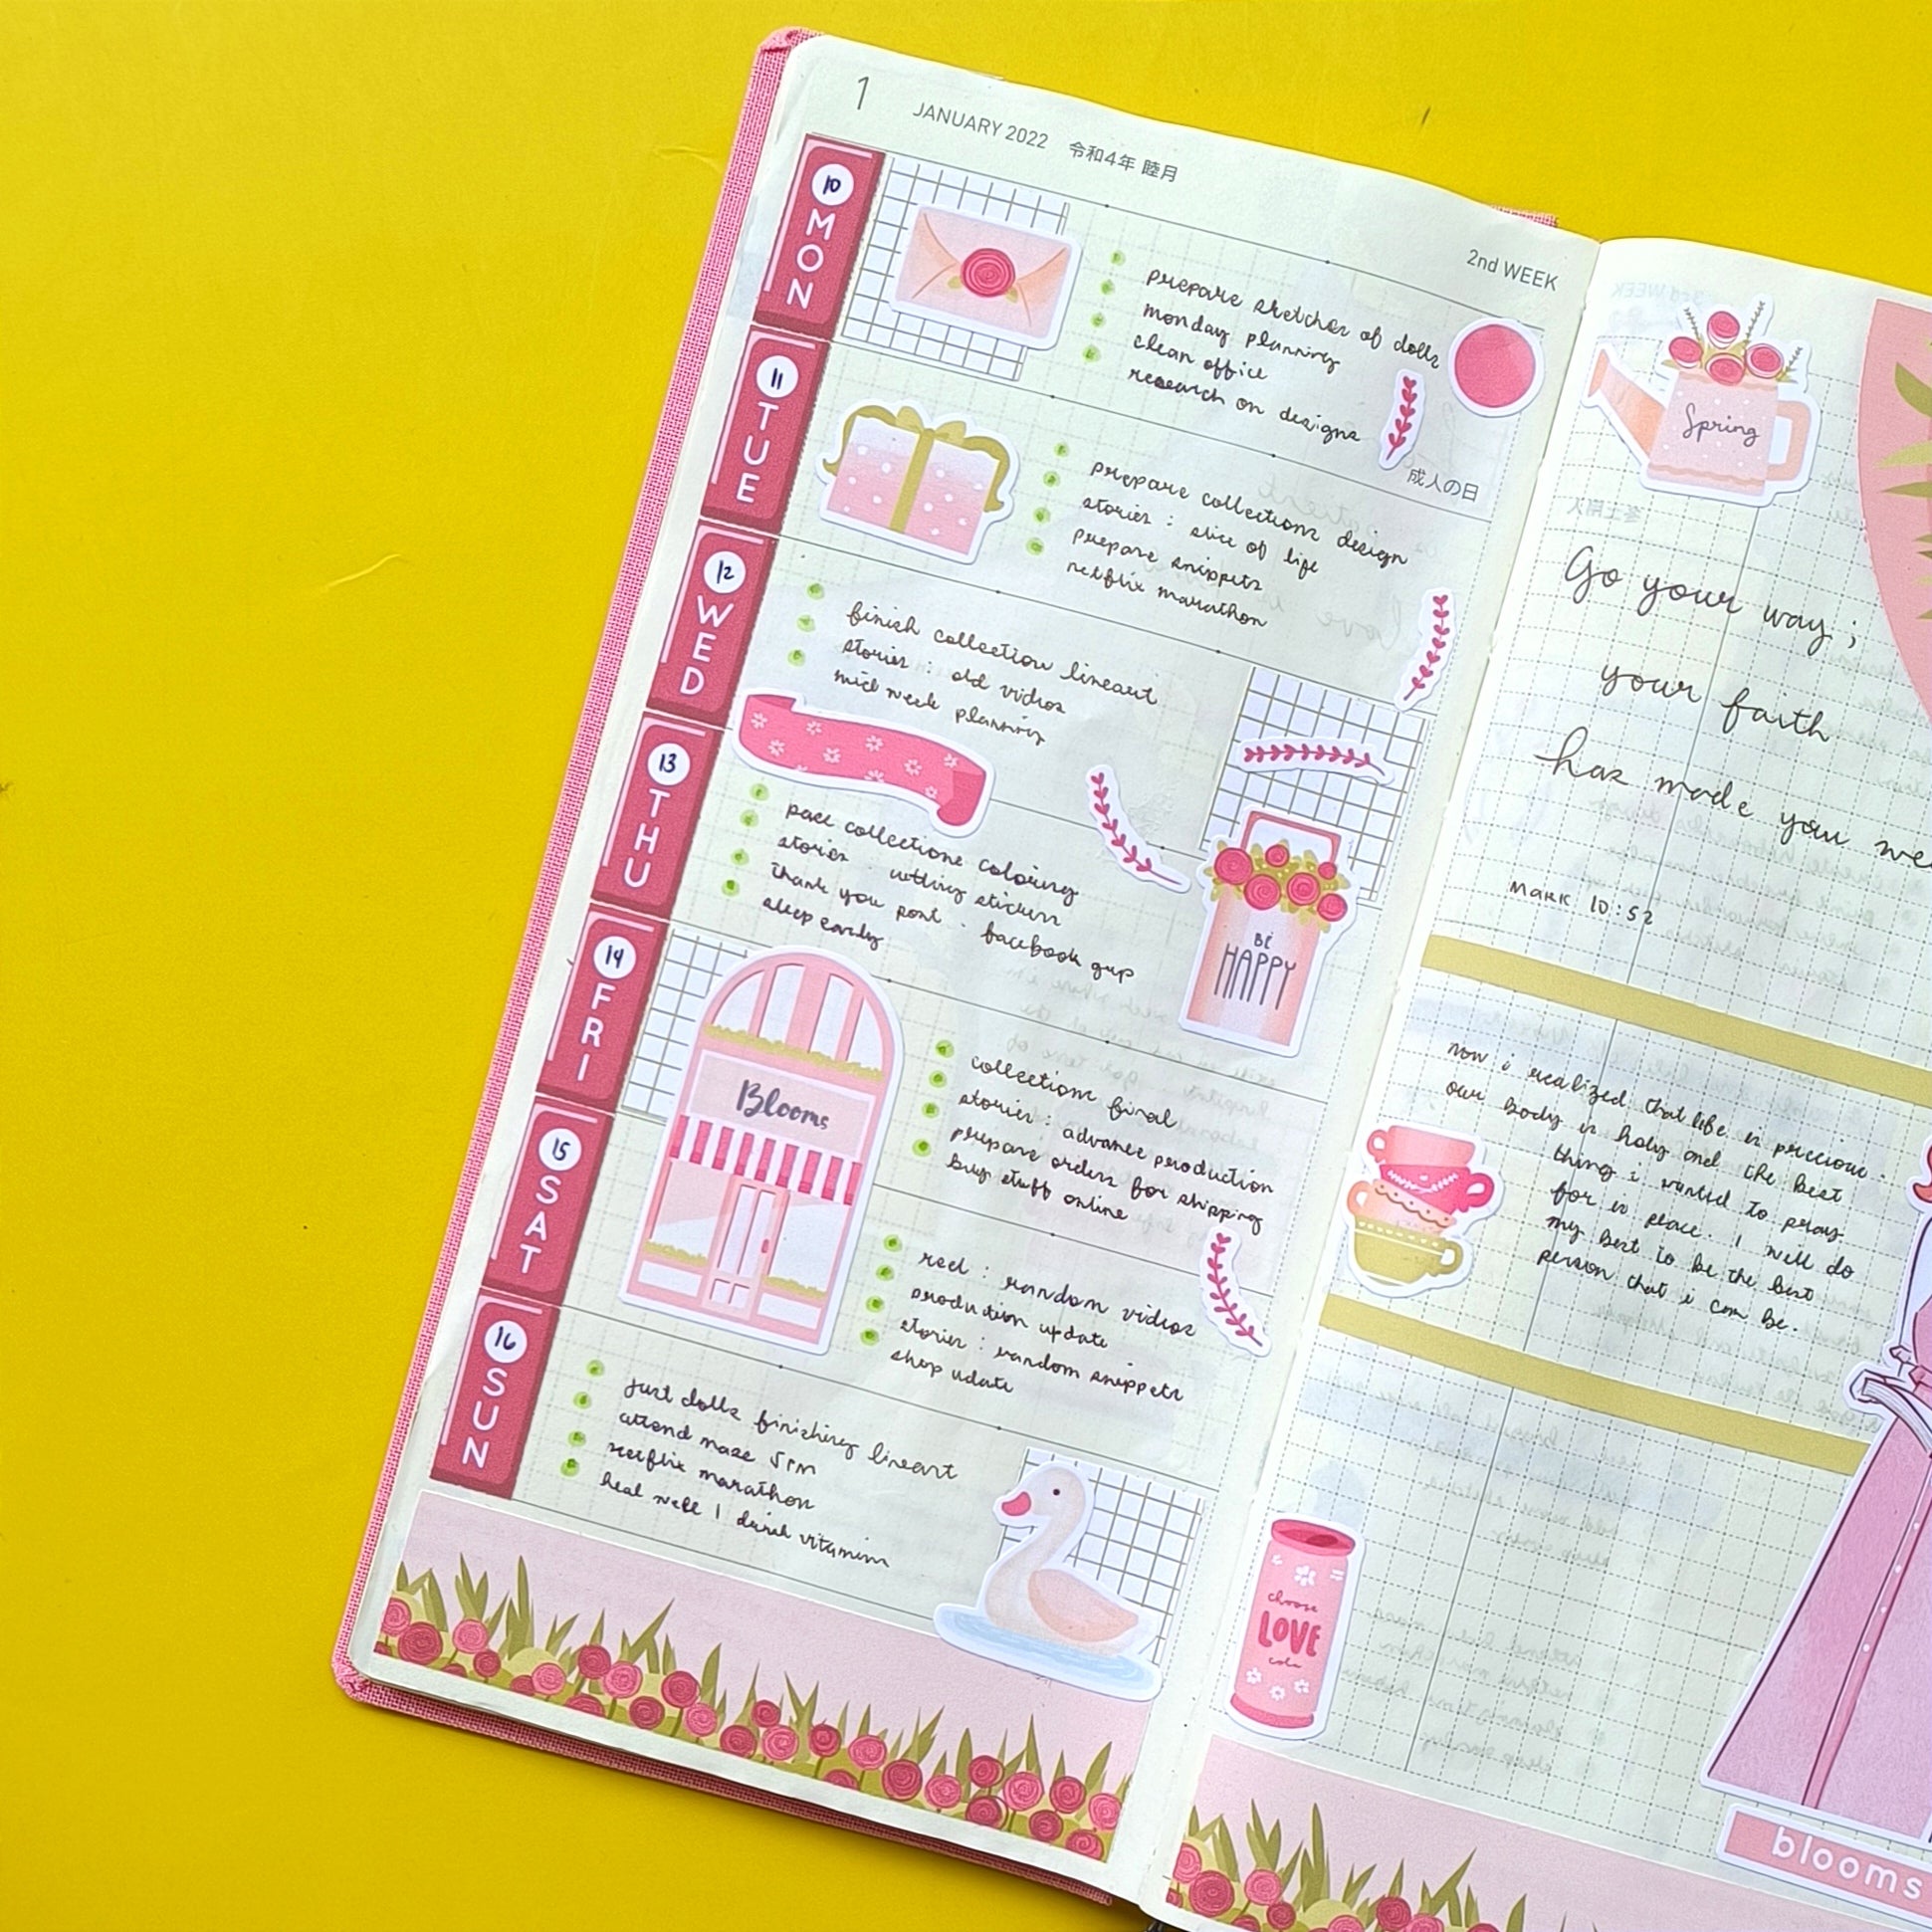 1 JANUARY 2022 令和4年 睦月
2nd WEEK
10 MON
prepare sketches of dolls
monday planning
clean office
research on designs
成人の日
11 TUE
prepare collections design
stories : slice of life
prepare snippets
netflix marathon
12 WED
finish collection lineart
stories : old videos
mid week planning
13 THU
collections coloring
stories : cutting stickers
thank you post - facebook
sleep early
BE
HAPPY
14 FRI
Blooms
collections final
stories : advance production
prepare orders for shipping
buy stuff online
15 SAT
reel : random videos
production update
stories : random snippets
shop udate
16 SUN
just dolls finishing lineart
attend mass 5pm
netflix marathon
heal well | drink vitamins
Spring
Go your way ;
your faith
has made you we
MARK 10:52
now i realized that life is precious.
our body is holy and the best
thing i wanted to pray
for is peace. I will do
my best to be the best
person that i can be.
choose
LOVE
cola
blooms